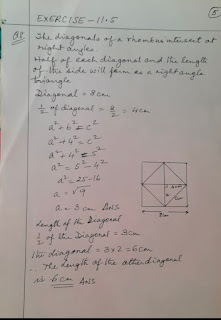 5
EXERCISE - 11.5
Q8. The diagonals of a rhombus intersect at
right angles.
Half of each diagonal and the length
of the side will form as a right angle
triangle
Diagonal = 8cm
1/2 of diagonal = 8/2 = 4cm
a² + b² = c²
a² + 4² = c²
a² + 4² = 5²
a² = 5² - 4²
a² = 25 - 16
a = √9
a = 3 cm Ans
Length of the Diagonal
1/2 of the Diagonal = 3cm
The diagonal = 3x2 = 6cm
∴ The length of the other diagonal
is 6cm Ans
4cm
5cm
8cm